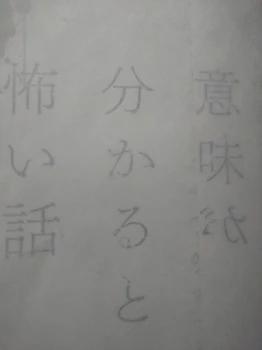 意味が
分かると
怖い話